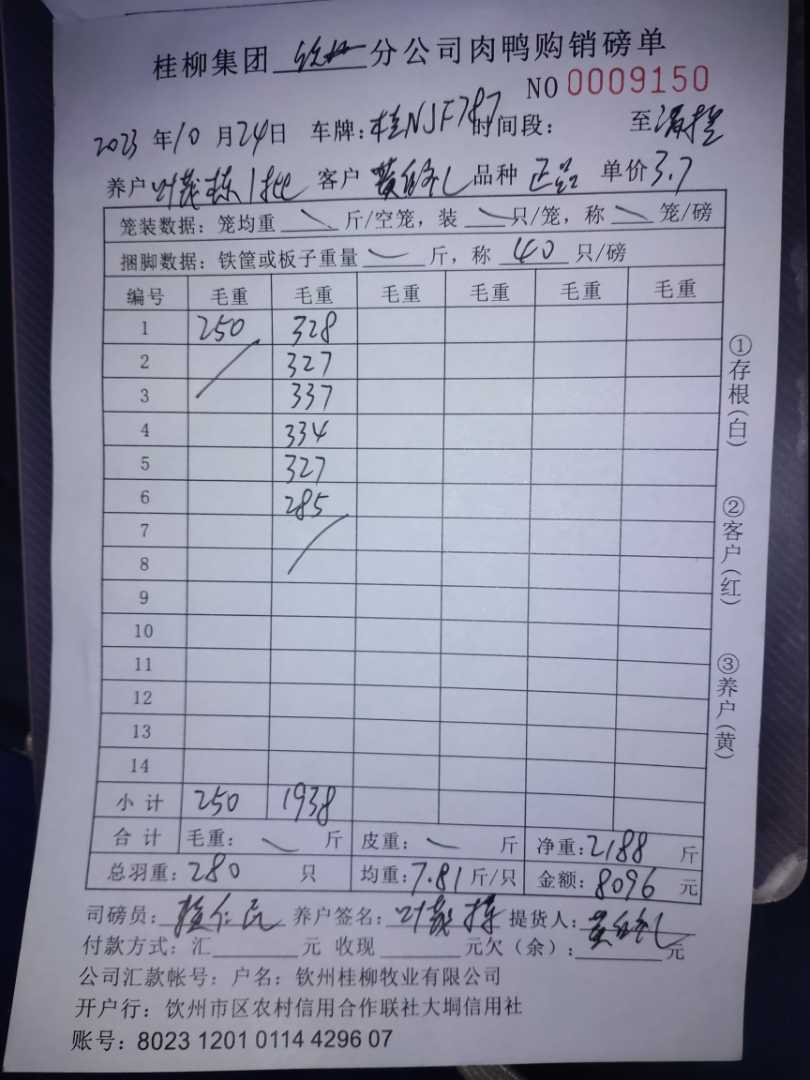 桂柳集团 钦州 分公司肉鸭购销磅单
NO 0009150
2023 年 10 月 24 日 车牌：桂NJF787 时间段： 至
养户 叶茂栋 1批 客户 黄 品种 正品 单价 3.7
笼装数据：笼均重 斤/空笼，装 只/笼，称 笼/磅
捆脚数据：铁筐或板子重量 斤，称 40 只/磅
编号 毛重 毛重 毛重 毛重 毛重 毛重
1 250 328
2 327
3 337
4 334
5 327
6 285
7
8
9
10
11
12
13
14
小计 250 1938
合计 毛重： 斤 皮重： 斤 净重：2188 斤
总羽重：280 只 均重：7.81 斤/只 金额：8096 元
司磅员： 仁民 养户签名：叶茂栋 提货人：黄
付款方式：汇 元 收现 元欠（余）： 元
公司汇款帐号：户名：钦州桂柳牧业有限公司
开户行：钦州市区农村信用合作联社大垌信用社
账号：8023 1201 0114 4296 07
①存根(白)
②客户(红)
③养户(黄)